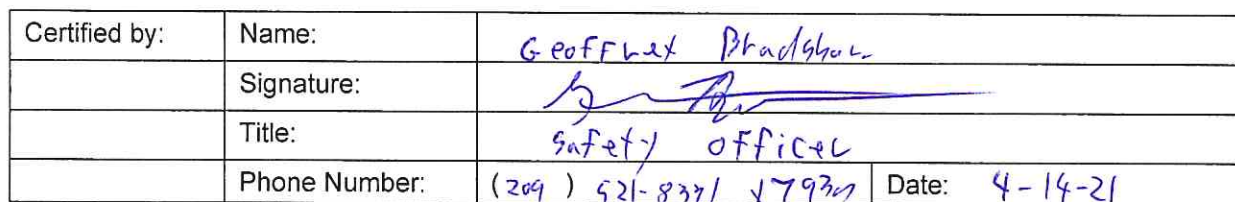 Certified by: Name: Geoffrey Bradshaw
Signature:
Title: Safety officer
Phone Number: (209) 521-8331 Date: 4-14-21